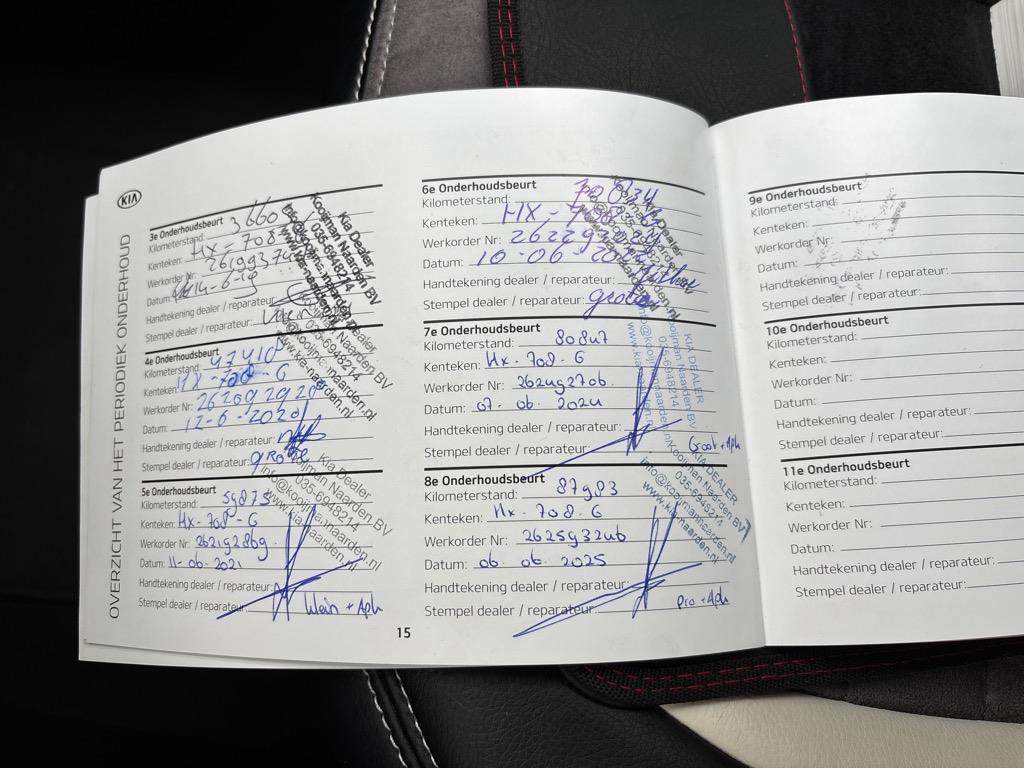 KIA
OVERZICHT VAN HET PERIODIEK ONDERHOUD
3e Onderhoudsbeurt
Kilometerstand: 3660
Kenteken: HX-708
Werkorder Nr:
Datum: 14-6-19
Handtekening dealer / reparateur:
Stempel dealer / reparateur: Klein
Kia Dealer
Kooijman Naarden BV
035-6948214
info@kooijmannaarden.nl
www.kia-naarden.nl
4e Onderhoudsbeurt
Kilometerstand:
Kenteken: HX-708-G
Werkorder Nr: 26209292
Datum: 12-6-2020
Handtekening dealer / reparateur:
Stempel dealer / reparateur: grote
Kia Dealer
Kooijman Naarden BV
035-6948214
info@kooijmannaarden.nl
www.kia-naarden.nl
5e Onderhoudsbeurt
Kilometerstand: 59875
Kenteken: Hx-708-G
Werkorder Nr: 262192869
Datum: 11-06-2021
Handtekening dealer / reparateur:
Stempel dealer / reparateur: Klein + Apk
Kia Dealer
Kooijman Naarden BV
035-6948214
info@kooijmannaarden.nl
www.kia-naarden.nl
15
6e Onderhoudsbeurt
Kilometerstand:
Kenteken: HX-
Werkorder Nr: 26229
Datum: 10-06-
Handtekening dealer / reparateur:
Stempel dealer / reparateur: grote
Kia Dealer
Kooijman Naarden BV
7e Onderhoudsbeurt
Kilometerstand: 80847
Kenteken: Hx-708-G
Werkorder Nr: 262492706
Datum: 07-06-2024
Handtekening dealer / reparateur:
Stempel dealer / reparateur: Groot + Apk
KIA DEALER
Kooijman Naarden BV
035-6948214
info@kooijmannaarden.nl
www.kia-naarden.nl
8e Onderhoudsbeurt
Kilometerstand: 87983
Kenteken: Hx-708-G
Werkorder Nr: 262593246
Datum: 06-06-2025
Handtekening dealer / reparateur:
Stempel dealer / reparateur: Pro + Apk
KIA DEALER
Kooijman Naarden BV
035-6948214
info@kooijmannaarden.nl
www.kia-naarden.nl
9e Onderhoudsbeurt
Kilometerstand:
Kenteken:
Werkorder Nr:
Datum:
Handtekening dealer / reparateur:
Stempel dealer / reparateur:
10e Onderhoudsbeurt
Kilometerstand:
Kenteken:
Werkorder Nr:
Datum:
Handtekening dealer / reparateur:
Stempel dealer / reparateur:
11e Onderhoudsbeurt
Kilometerstand:
Kenteken:
Werkorder Nr:
Datum:
Handtekening dealer / reparateur:
Stempel dealer / reparateur: